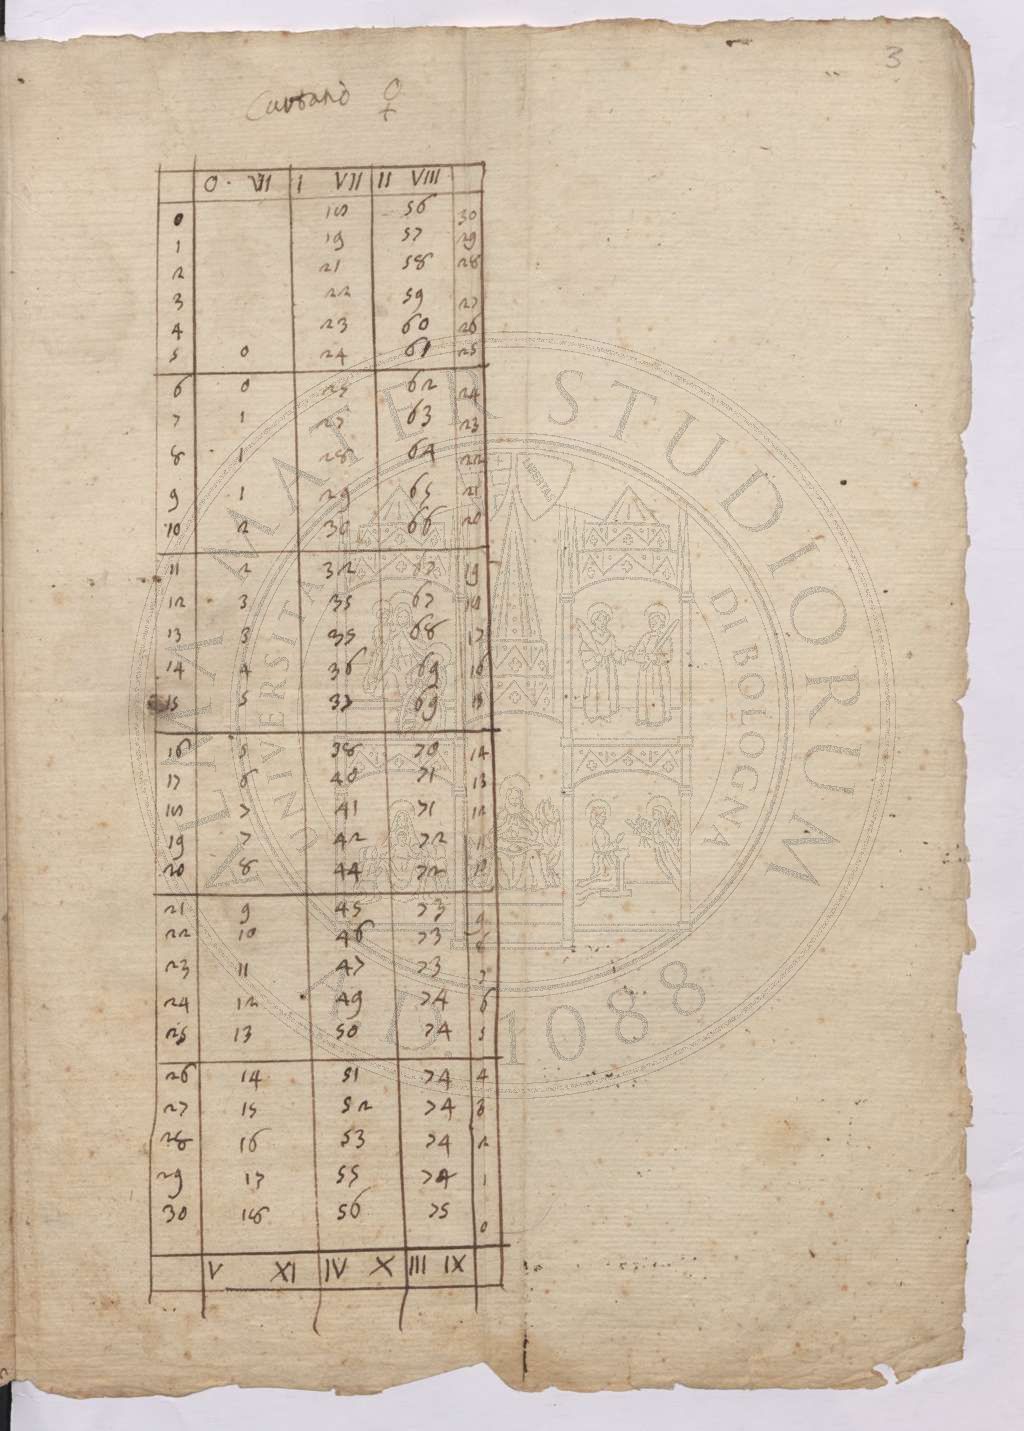 3
♀
0 · VII I VII II VIII
0 18 56 30
1 19 57 29
2 21 58 28
3 22 59 27
4 23 60 26
5 0 24 61 25
6 0 25 62 24
7 1 27 63 23
8 1 28 64 22
9 1 29 65 21
10 2 30 66 20
11 2 32 67 19
12 3 33 67 18
13 3 35 68 17
14 4 36 69 16
15 5 37 69 15
16 5 38 70 14
17 6 40 71 13
18 7 41 71 12
19 7 42 72 11
20 8 44 72 10
21 9 45 73 9
22 10 46 73 8
23 11 47 73 7
24 12 49 74 6
25 13 50 74 5
26 14 51 74 4
27 15 52 74 3
28 16 53 74 2
29 17 55 74 1
30 18 56 75 0
V XI IV X III IX
ALMA MATER STUDIORUM
UNIVERSITA DI BOLOGNA
A.D. 1088